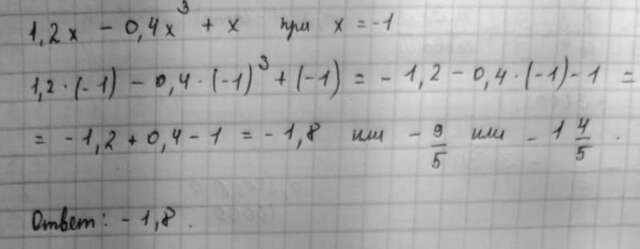 1,2x - 0,4x³ + x при x = -1
1,2·(-1) - 0,4·(-1)³ + (-1) = -1,2 - 0,4·(-1) - 1 =
= -1,2 + 0,4 - 1 = -1,8 или - 9/5 или - 1 4/5 .
Ответ: -1,8.